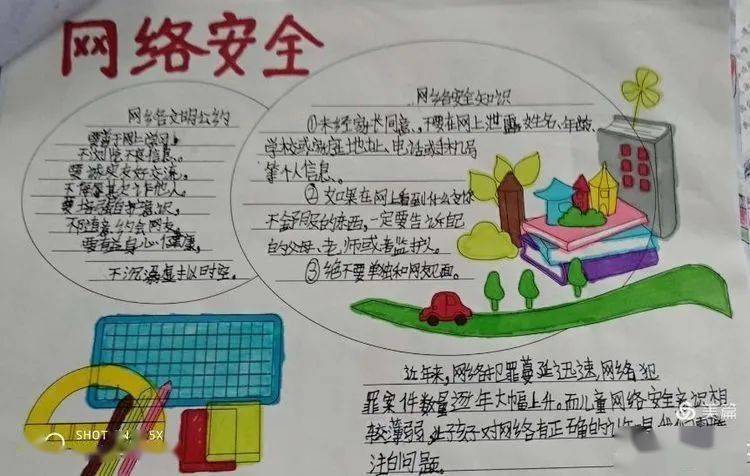 网络安全
网络文明公约
要善于网上学习
不浏览不良信息。
要诚实友好交流。
不侮辱欺诈他人。
要增强自护意识，
不随意约会网友。
要有益身心健康，
不沉溺虚拟时空。
网络安全知识
①未经家长同意、不要在网上泄露姓名、年龄、
学校或家庭地址、电话或手机号
等个人信息。
②如果在网上看到什么
不舒服的东西，一定要告诉自己
的父母、老师或者监护人。
③绝不要单独和网友见面。
近年来，网络犯罪蔓延迅速，网络犯
罪案件数量逐年大幅上升。而儿童网络安全意识相
较薄弱，让孩子对网络有正确的
注的问题。
美篇
SHOT 5X